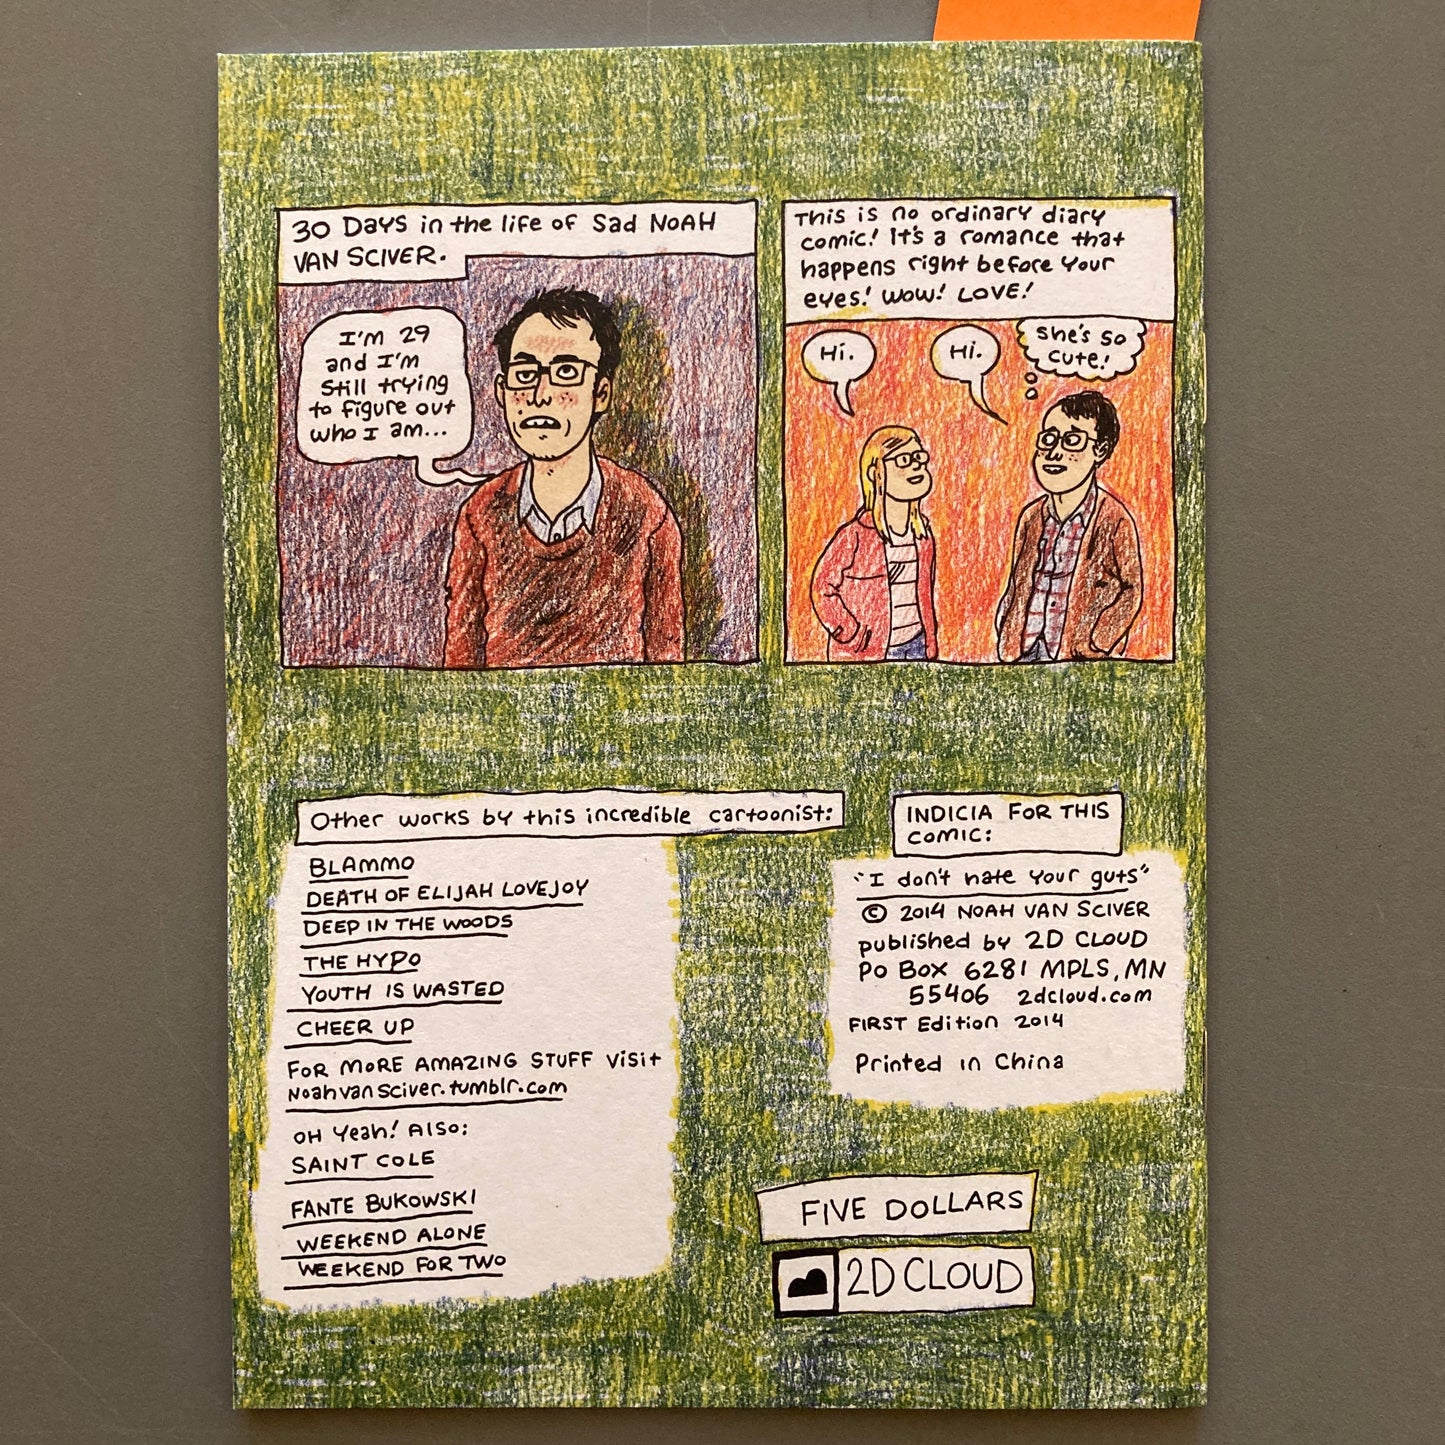 30 Days in the life of Sad NOAH
VAN SCIVER.
I'm 29
and I'm
still trying
to figure out
who I am...
This is no ordinary diary
comic! It's a romance that
happens right before your
eyes! WOW! LOVE!
Hi.
Hi.
She's so
cute!
Other works by this incredible cartoonist:
BLAMMO
DEATH OF ELIJAH LOVEJOY
DEEP IN THE WOODS
THE HYPO
YOUTH IS WASTED
CHEER UP
FOR MORE AMAZING STUFF visit
Noahvansciver.tumblr.com
OH Yeah! Also:
SAINT COLE
FANTE BUKOWSKI
WEEKEND ALONE
WEEKEND FOR TWO
INDICIA FOR THIS
COMIC:
"I don't hate your guts"
© 2014 NOAH VAN SCIVER
published by 2D CLOUD
PO BOX 6281 MPLS, MN
55406 2dcloud.com
FIRST Edition 2014
Printed in China
FIVE DOLLARS
2D CLOUD